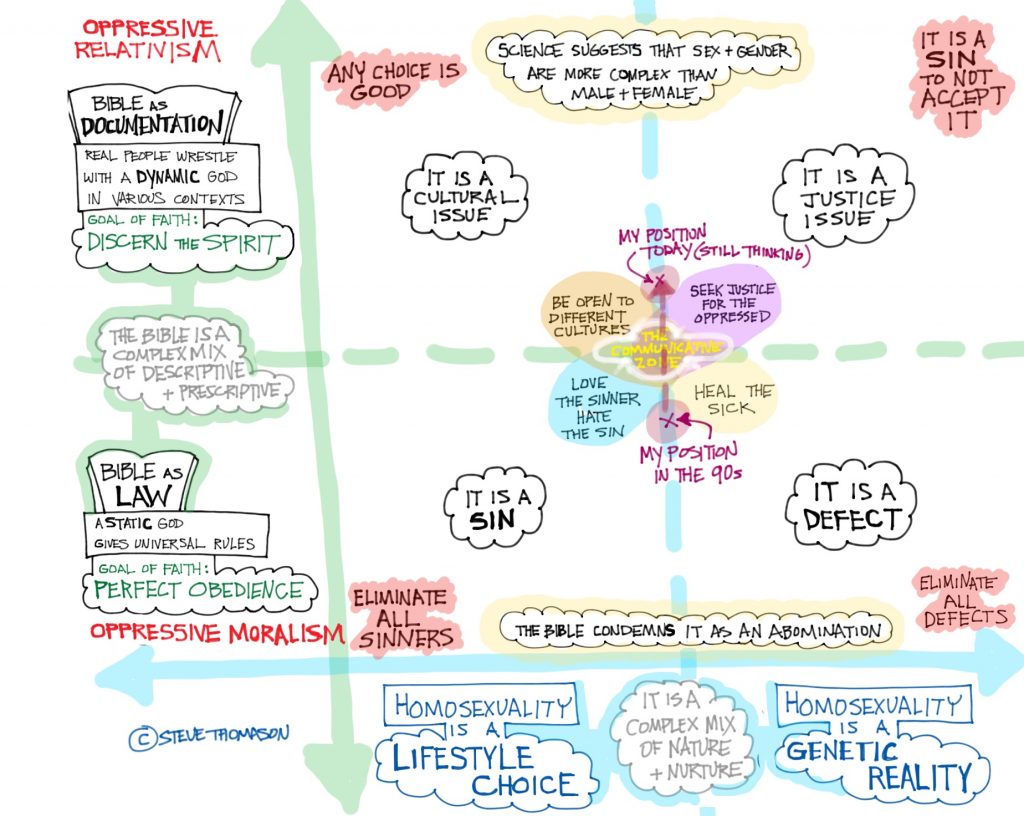 OPPRESSIVE
RELATIVISM
BIBLE AS
DOCUMENTATION
REAL PEOPLE WRESTLE
WITH A DYNAMIC GOD
IN VARIOUS CONTEXTS
GOAL OF FAITH:
DISCERN THE SPIRIT
THE BIBLE IS A
COMPLEX MIX
OF DESCRIPTIVE
+ PRESCRIPTIVE
BIBLE AS
LAW
A STATIC GOD
GIVES UNIVERSAL RULES
GOAL OF FAITH:
PERFECT OBEDIENCE
OPPRESSIVE MORALISM
ANY CHOICE IS
GOOD
SCIENCE SUGGESTS THAT SEX + GENDER
ARE MORE COMPLEX THAN
MALE + FEMALE
IT IS A
SIN
TO NOT
ACCEPT
IT
IT IS A
CULTURAL
ISSUE
IT IS A
JUSTICE
ISSUE
MY POSITION
TODAY (STILL THINKING)
X
BE OPEN TO
DIFFERENT
CULTURES
SEEK JUSTICE
FOR THE
OPPRESSED
THE
COMMUNICATIVE
ZONE
LOVE
THE SINNER
HATE
THE SIN
HEAL THE
SICK
X
MY POSITION
IN THE 90s
IT IS A
SIN
IT IS A
DEFECT
ELIMINATE
ALL
SINNERS
THE BIBLE CONDEMNS IT AS AN ABOMINATION
ELIMINATE
ALL
DEFECTS
HOMOSEXUALITY
IS A
LIFESTYLE
CHOICE
IT IS A
COMPLEX MIX
OF NATURE
+ NURTURE
HOMOSEXUALITY
IS A
GENETIC
REALITY
© STEVE THOMASON